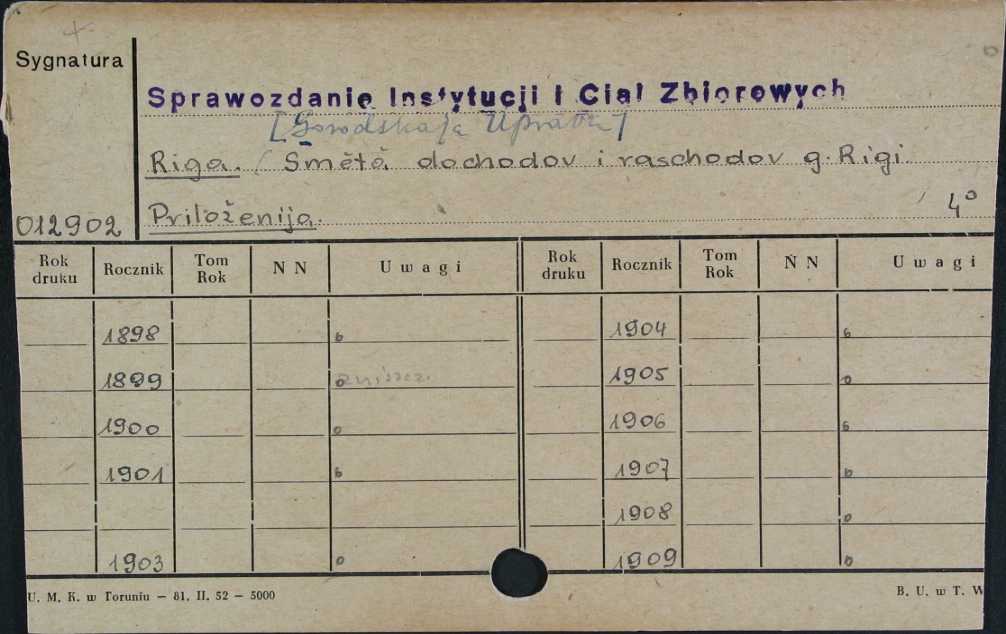 Sygnatura
Sprawozdanie Instytucji i Ciał Zbiorowych
[Gorodskaja Uprava]
Riga. Smětă dochodov i raschodov g. Rigi.
012902
Priloženija.
4°
Rok druku Rocznik Tom Rok N N Uwagi Rok druku Rocznik Tom Rok N N Uwagi
1898 b 1904 b
1899 o zniszcz. 1905 o
1900 o 1906 b
1901 b 1907 b
1908 o
1903 o 1909 b
U. M. K. w Toruniu – 81. II. 52 – 5000
B. U. w T. W